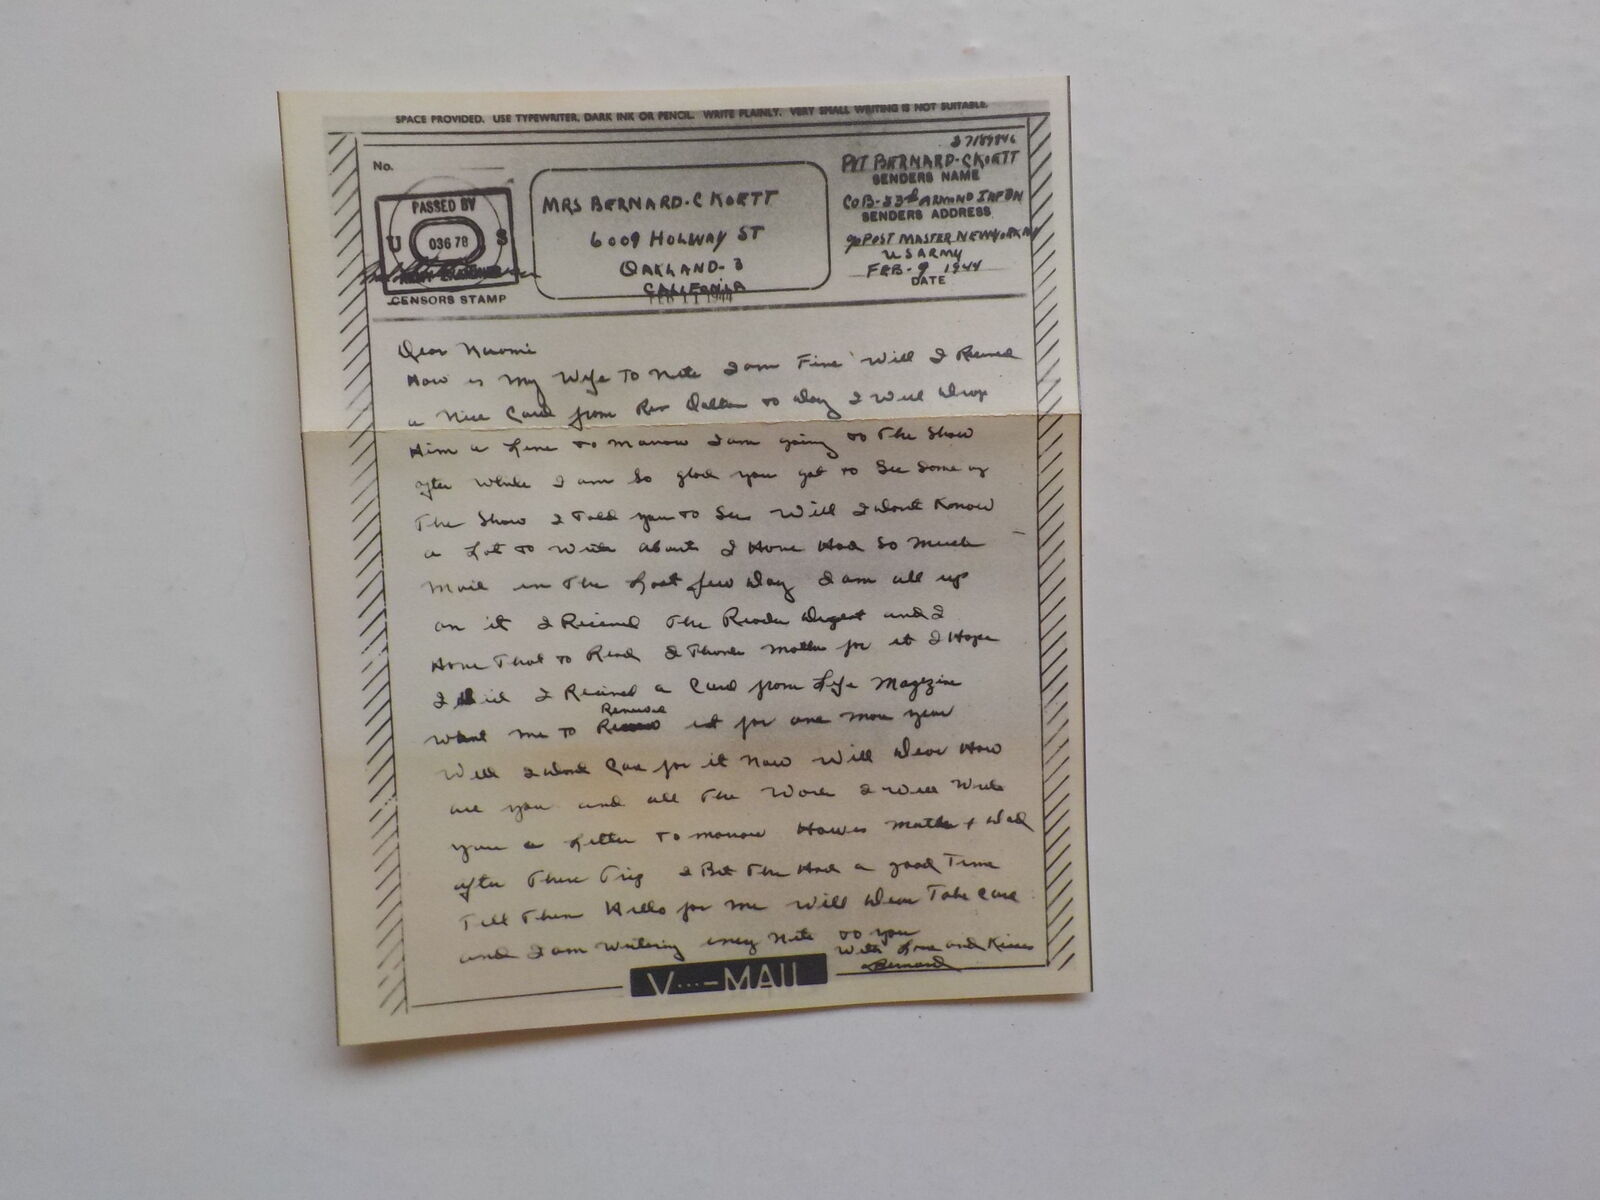 SPACE PROVIDED. USE TYPEWRITER, DARK INK OR PENCIL. WRITE PLAINLY. VERY SMALL WRITING IS NOT SUITABLE.
No.
PASSED BY
U S
03678
ARMY EXAMINER
CENSORS STAMP
MRS BERNARD-C KOETT
6009 HOLWAY ST
OAKLAND-3
CALIFONIA
FEB 11 1944
PVT BERNARD-C KOETT
SENDERS NAME
CO B-53rd ARMOND INF BN
SENDERS ADDRESS
% POST MASTER NEW YORK NY
US ARMY
FEB-9 1944
DATE
Dear Naomi
How is My Wife To Nite I am Fine Will I Recived
a Nice Card from Rev to Day I Will Drop
Him a Line to marrow I am going to The Show
after While I am So glad you got to See Some of
The Show I Told you To See Will I dont Konow
a Lot to Write about I Have Had So Much
Mail in The Last few Day I am all up
on it I Recived The Reader Digest and I
Have That to Read I Thank Mother for it I Hope
I did I Recived a Card from Life Magezine
Want me To Renewed it for one more year
Will I dont Care for it Now Will Dear How
are you and all The Work I Will Write
you a Letter To morrow How is Mother + Dad
after There Trip I Bet The Had a good Time
Tell Them Hello for me Will Dear Take Care
and I am Writering every Nite to you
With Love and Kisses
Bernard
V...-MAIL